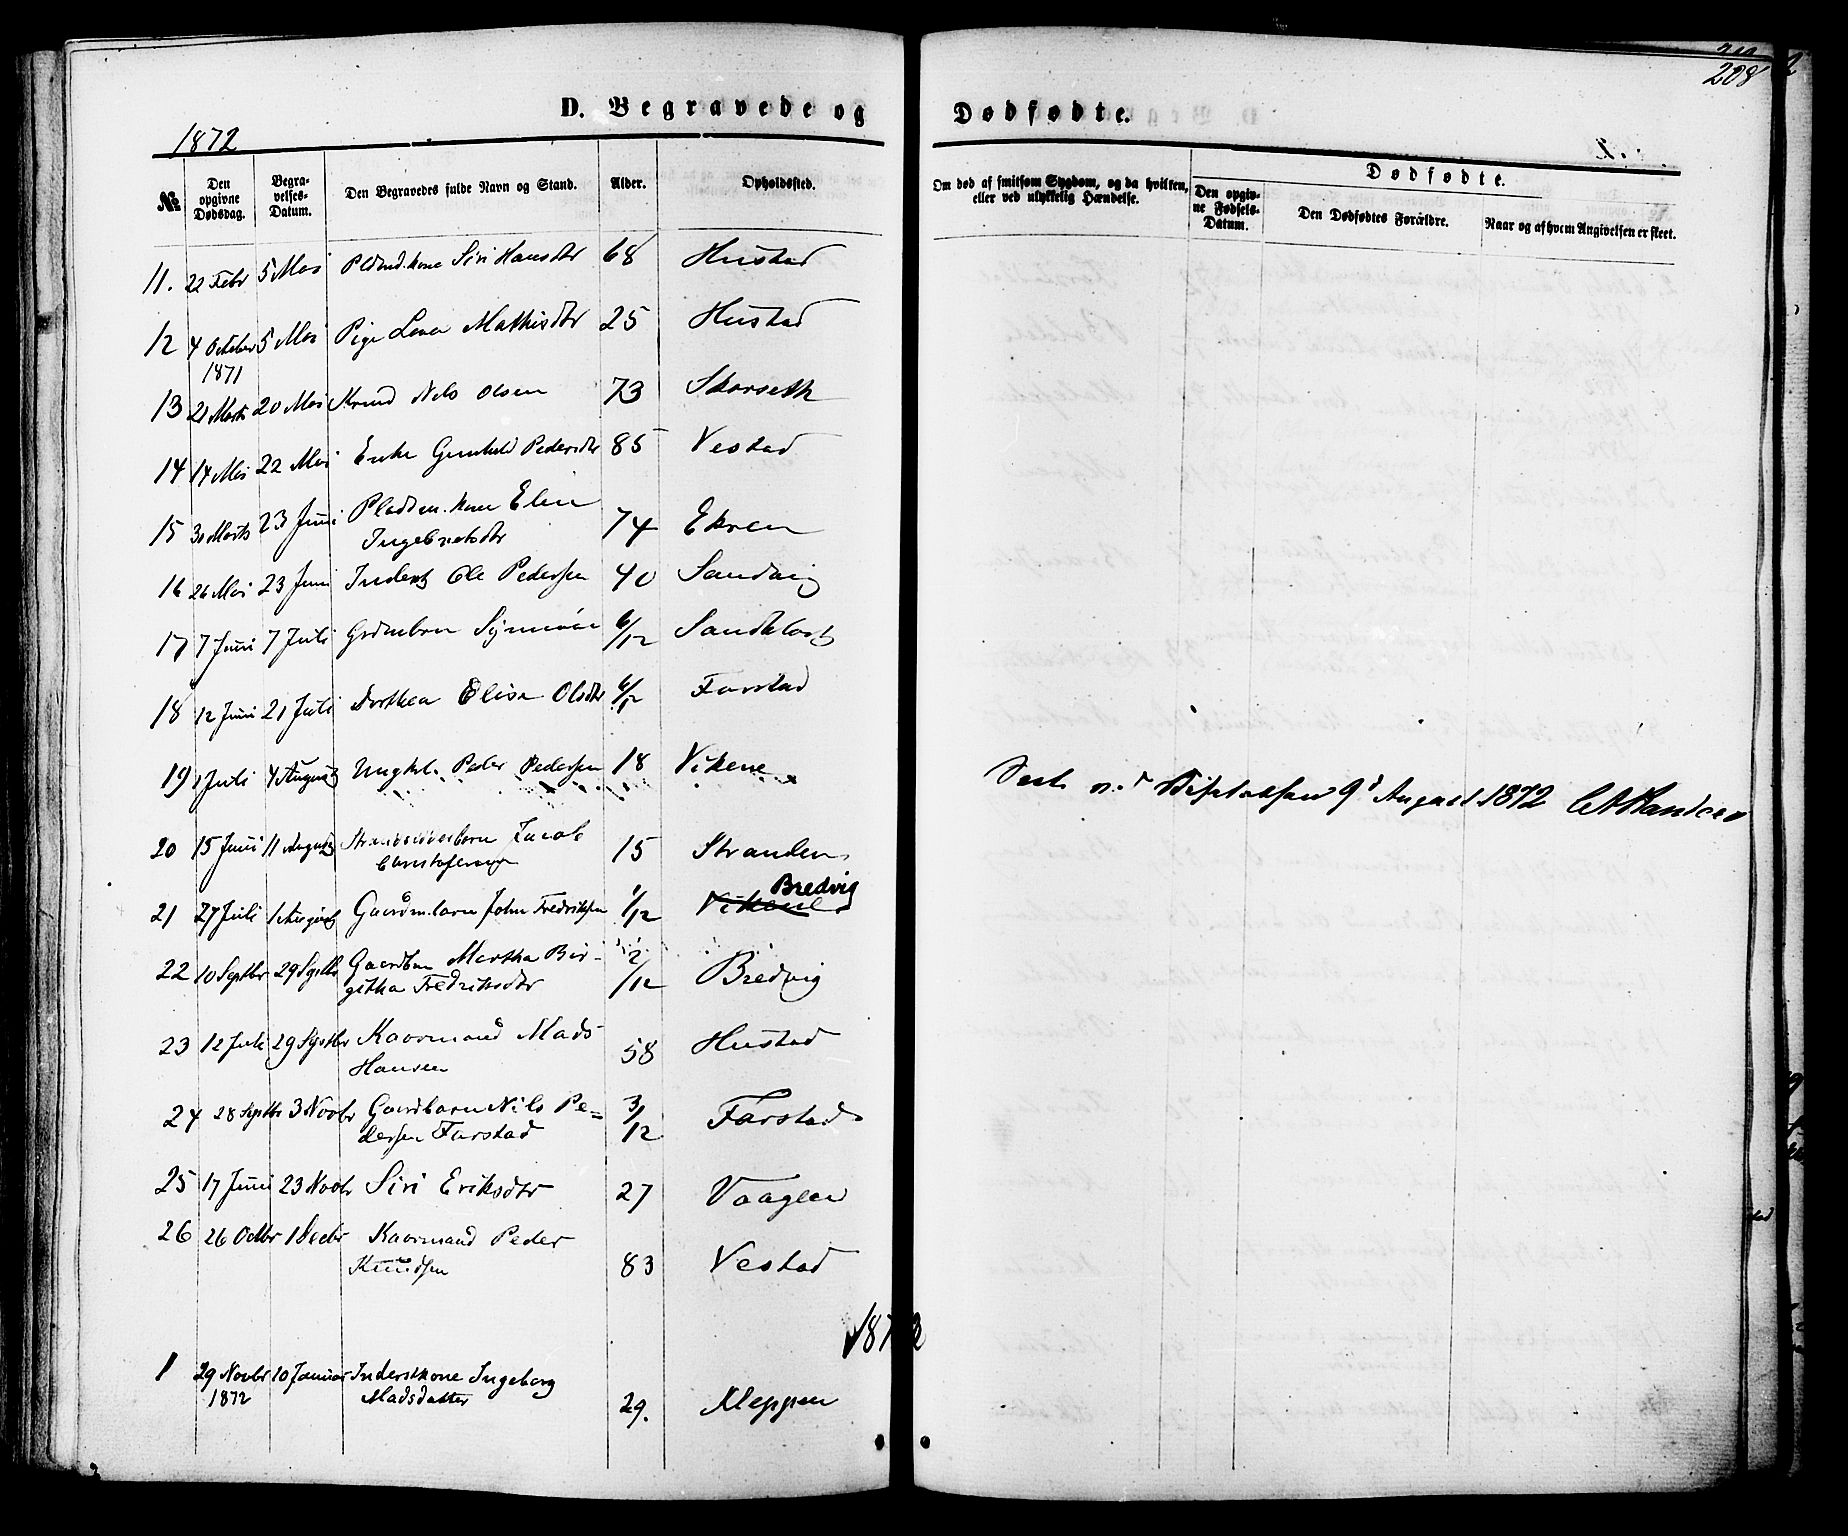 208
D. Begravede og Dødfødte.
1872
№ Den opgivne Dødsdag. Begravelses-Datum. Den Begravedes fulde Navn og Stand. Alder. Opholdssted. Om død af smitsom Sygdom, og da hvilken, eller ved ulykkelig Hændelse. Dødfødte. Den opgivne Fødsels-Datum. Den Dødfødtes Forældre. Naar og af hvem Angivelsen er skeet.
11. 22 Febr 5 Mai Pldmd. kone Siri Hansdtr 68 Hustad
12 4 October 5 Mai Pige Lena Mathisdtr 25 Hustad
1871
13 21 Marts 20 Mai Nils Olsen 73 Skorseth
14 14 Mai 22 Mai Enke Gunhild Pedersdtr 85 Vestad
15 30 Marts 23 Juni Pladsm. kone Elin 74 Ekren
Ingebretsdtr
16 26 Mai 23 Juni Inderst Ole Pedersen 40 Sandvig
17 7 Juni 7 Juli Grdmbrn Synnøve 6/12 Sandblost
18 12 Juni 21 Juli Dorthea Elisa Olsdtr 6/12 Farstad
19 1 Juli 4 August Ungkl. Peder Pedersen 18 Vikene
9d August 1872
20 15 Juni 11 August Strandsidderbarn Jacob 15 Stranden
Christofersen
21 27 Juli 1 August Gaardm.barn John Fredriksen 1/12 Vikene Bredvig
22 10 Septbr 29 Septbr Gaardbrn Martha Bir-
githa Fredriksdtr 2/12 Bredvig
23 12 Juli 29 Septbr Kaarmand Mads 58 Hustad
Hansen
24 28 Septbr 3 Novbr Gaardbarn Nils Pe= 3/12 Farstad
dersen Farstad
25 17 Juni 23 Novbr Siri Eriksdtr 27 Vaagen
26 26 Octbr 1 Decbr Kaarmand Peder
Knudsen 83 Vestad
1873
1 29 Novbr 10 Januar Inderstkone Ingeborg
1872 Madsdatter 29. Kleppen